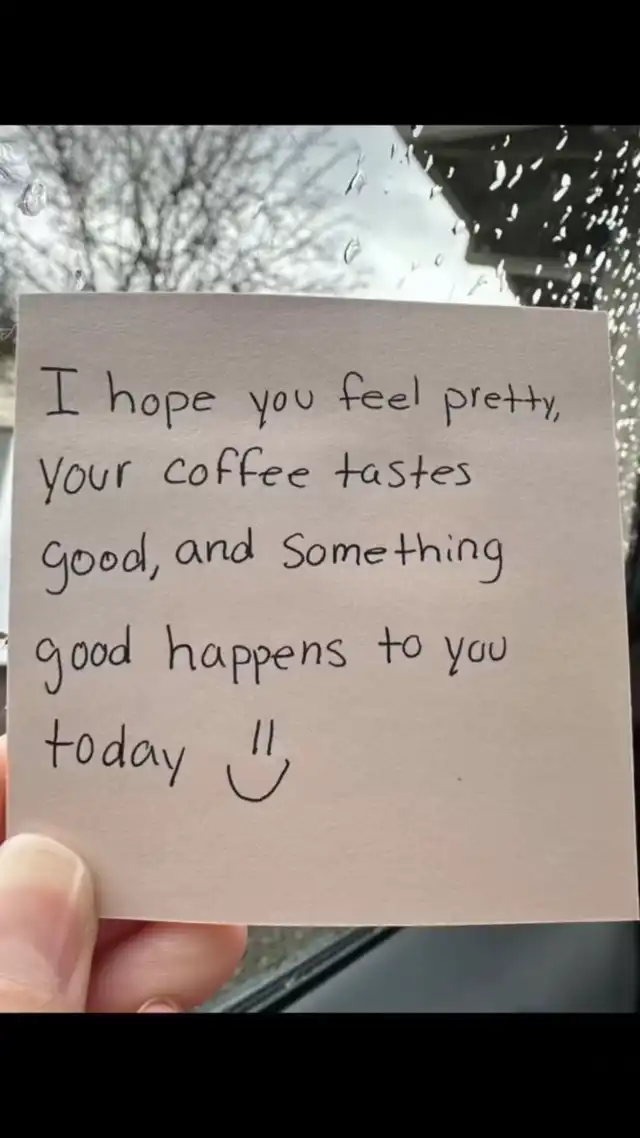 I hope you feel pretty,
your coffee tastes
good, and something
good happens to you
today